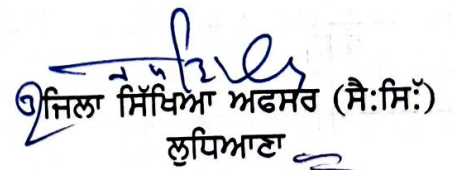 ਜਿਲਾ ਸਿੱਖਿਆ ਅਫਸਰ (ਸੈ:ਸਿ:)
ਲੁਧਿਆਣਾ